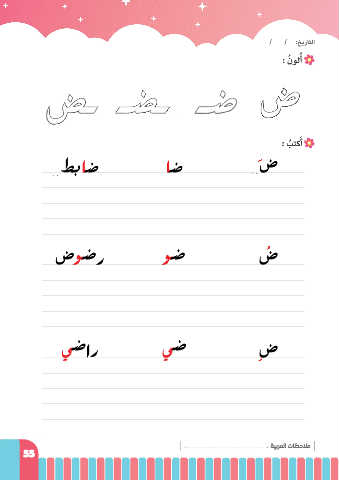 التاريخ: / /
أُلونُ :
ض ضـ ـضـ ـض
أكتبُ :
ضَ ضا ضابط
ضُ ضو رضوض
ضِ ضي راضي
ملاحظات المربية
55